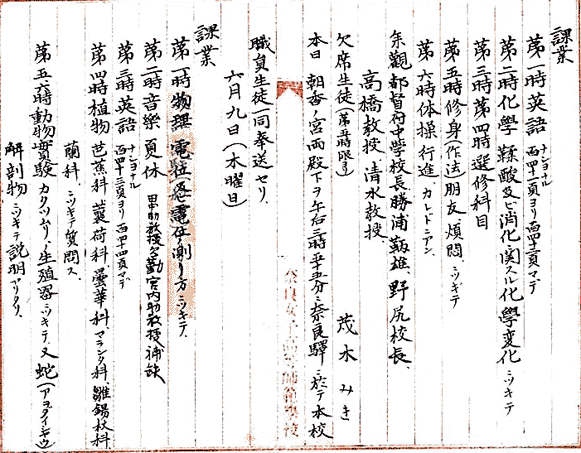 課業
第一時英語 ナショナル 百四十一頁ヨリ百四十二頁マデ
第二時化學 鞣酸及ビ消化ニ関スル化學変化ニツキテ
第三時第四時選修科目
第五時修身(作法)朋友煩悶ニツキテ
第六時体操 行進 カレドニアン、
参觀 都督府中学校長 勝浦鞆雄、野尻校長、
高橋教授、清水教授、
欠席生徒(第五時限リ) 茂木みき
本日 朝香ノ宮両殿下ヲ午后三時平五分ニ奈良驛ニ於テ本校
職員生徒一同奉送セリ、
六月九日(木曜日)
課業
第一時物理 電位及電位ノ測リ方ニツキテ、
第二時音樂 夏休 田中助教授欠勤宮内助教授補缺
第三時英語 ナショナル 百四十三頁ヨリ百四十四頁マデ
第四時植物 芭蕉科 蘘荷科 曇華科、マランタ科、雛錫杖科
蘭科ニツキテ質問ス、
第五六時動物實驗 カタツムリノ生殖器ニツキテ、又蛇(アヲダイシヤウ)
解剖物ニツキテ説明アリタリ、
奈良女子高等師範學校